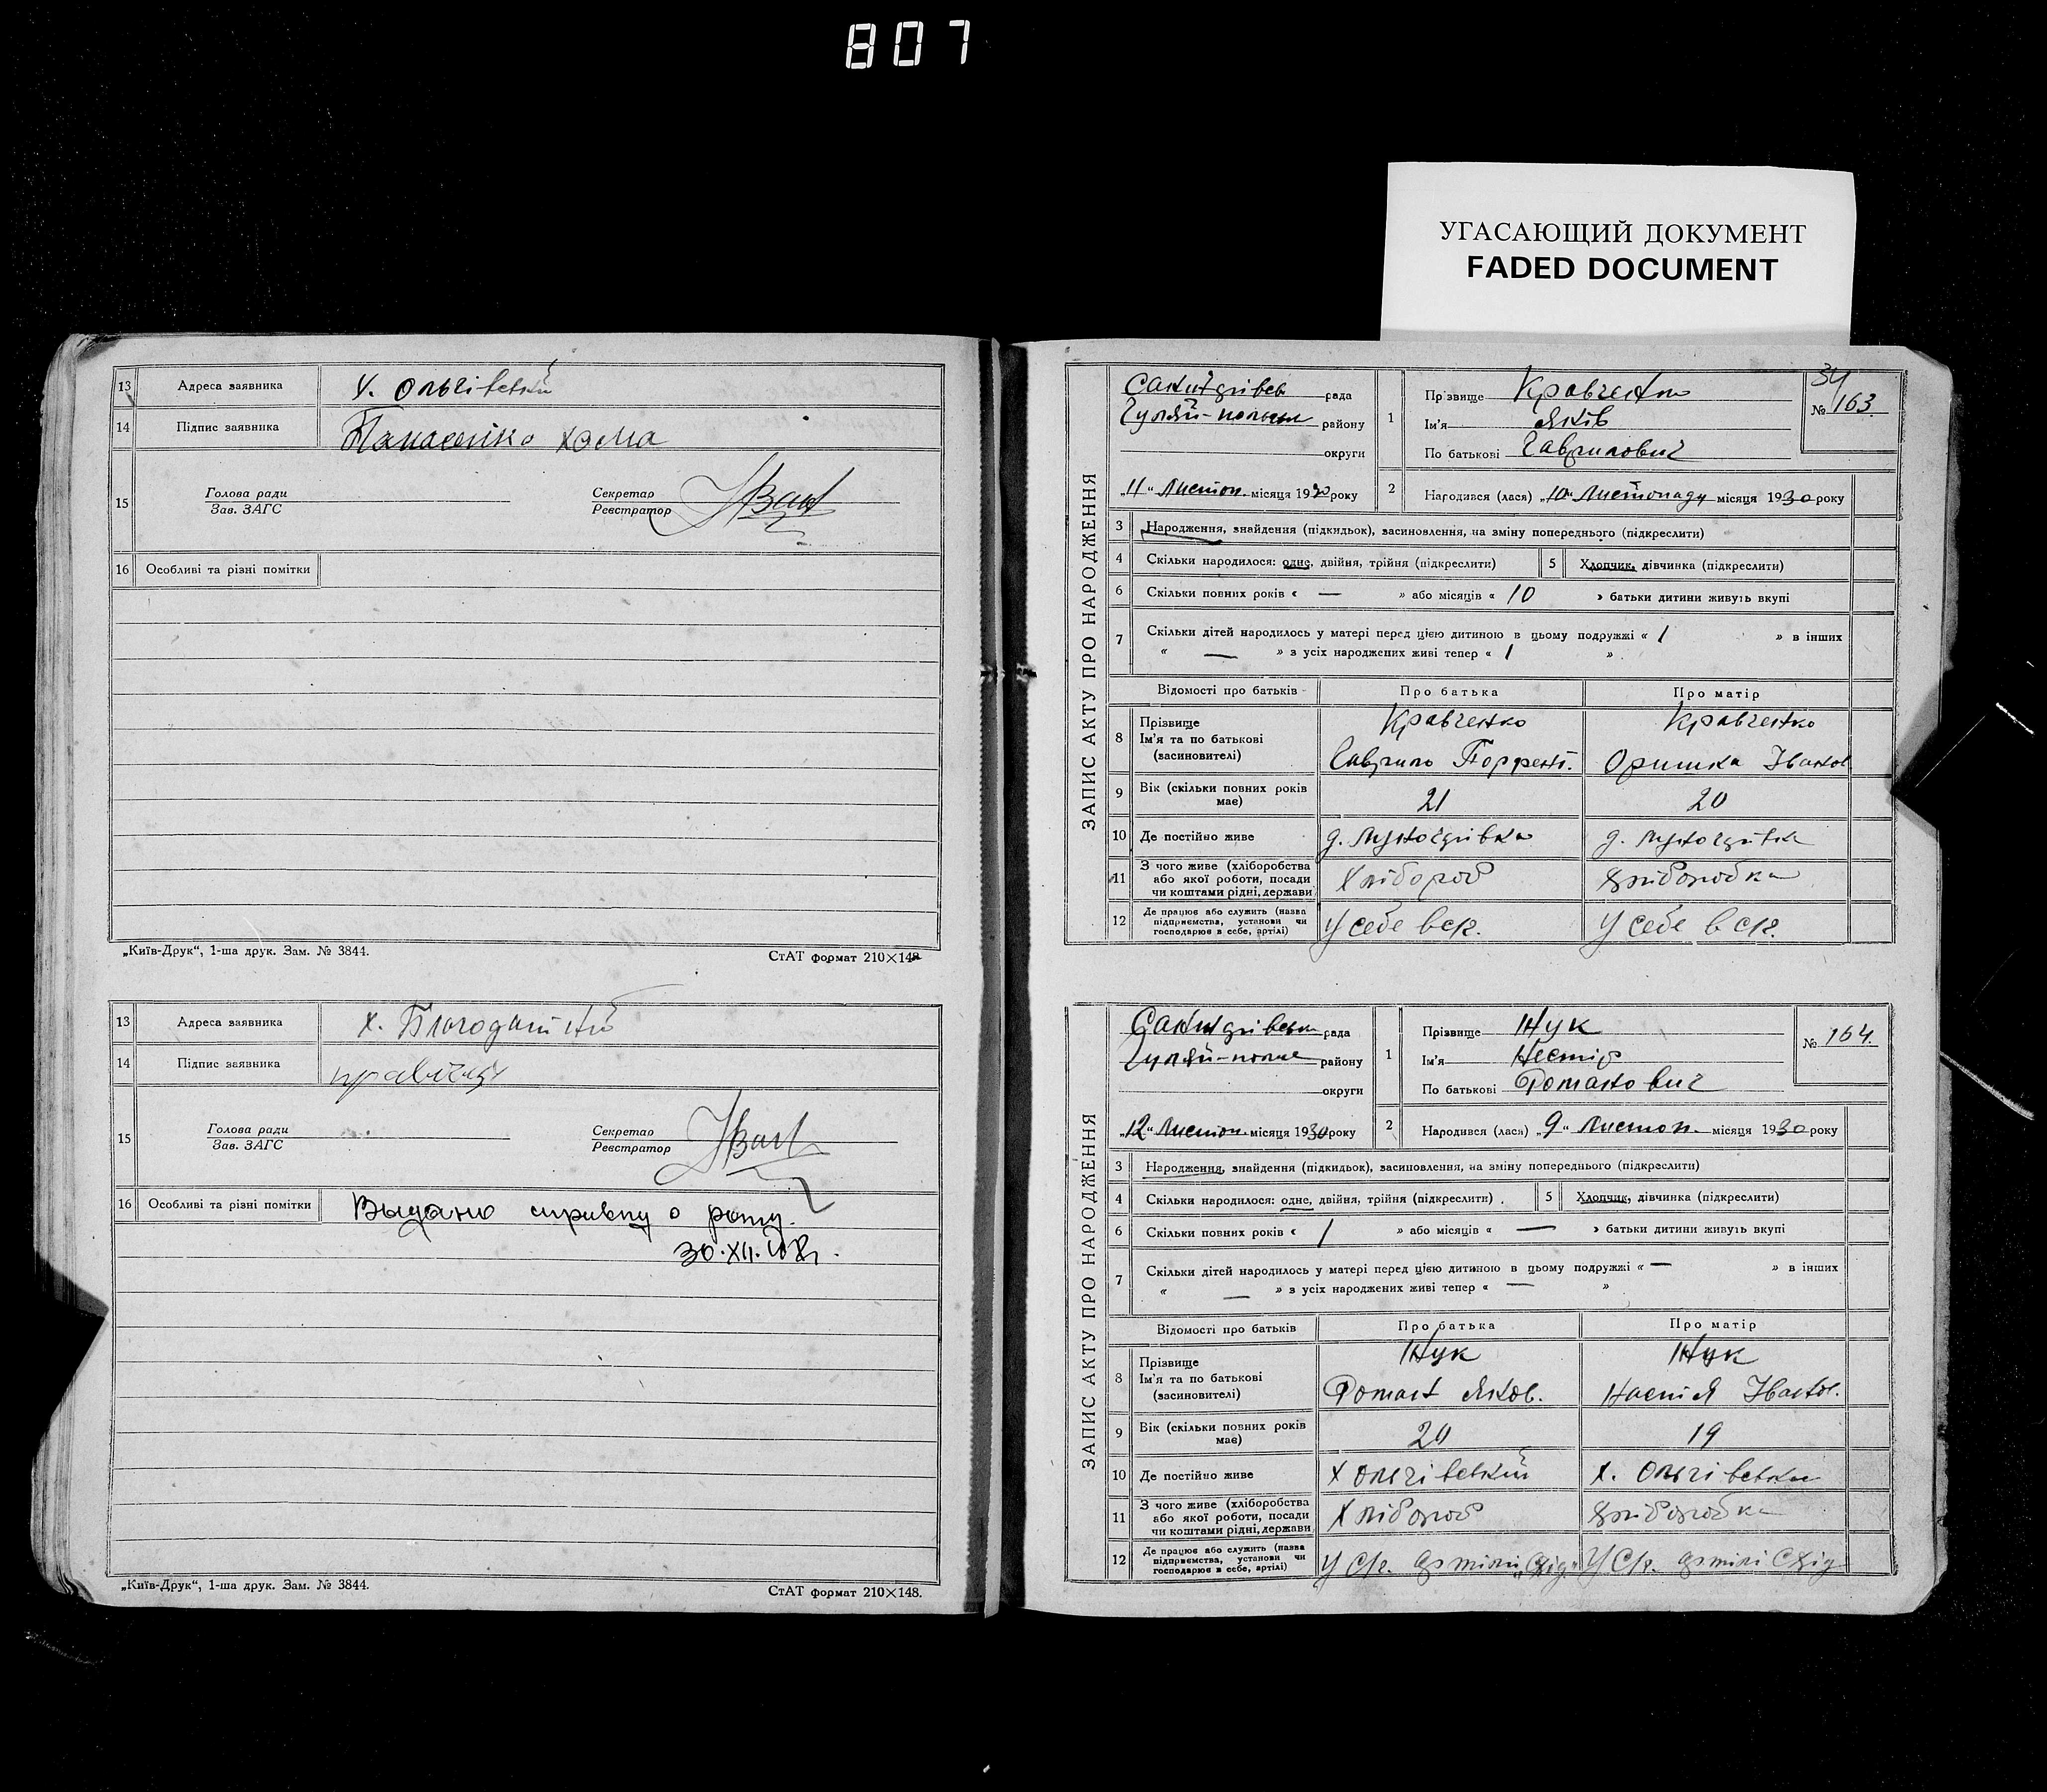 807
УГАСАЮЩИЙ ДОКУМЕНТ
FADED DOCUMENT
13 Адреса заявника х. Ольгівський
14 Підпис заявника Панасенко Хома
15 Голова ради
Зав. ЗАГС
Секретар
Реєстратор
16 Особливі та різні помітки
„Київ-Друк“, 1-ша друк. Зам. № 3844.
СтАТ формат 210×148
13 Адреса заявника х.
14 Підпис заявника
15 Голова ради
Зав. ЗАГС
Секретар
Реєстратор
16 Особливі та різні помітки Выдано справку о
30.XII.
„Київ-Друк“, 1-ша друк. Зам. № 3844.
СтАТ формат 210×148.
ЗАПИС АКТУ ПРО НАРОДЖЕННЯ
рада
Гуляй-поль району
округи
„11“ Листоп. місяця 1930 року
34
№ 163.
1 Прізвище Кравченко
Ім'я Яків
По батькові Гаврилович
2 Народився (лася) „10“ Листопаду місяця 1930 року
3 Народження, знайдення (підкидьок), засиновлення, на зміну попереднього (підкреслити)
4 Скільки народилося: одне, двійня, трійня (підкреслити) 5 Хлопчик, дівчинка (підкреслити)
6 Скільки повних років « — » або місяців « 10 » батьки дитини живуть вкупі
7 Скільки дітей народилось у матері перед цією дитиною в цьому подружжі « 1 » в інших
« — » з усіх народжених живі тепер « 1 »
Відомості про батьків Про батька Про матір
8 Прізвище Кравченко Кравченко
Ім'я та по батькові
(засиновителі) Гаврило Оришка Іванов.
9 Вік (скільки повних років має) 21 20
10 Де постійно живе д. д.
11 З чого живе (хліборобства або якої роботи, посади чи коштами рідні, держави Хлібороб хліборобка
12 Де працює або служить (назва підприємства, установи чи господарює в себе, артілі) У себе в с/г. У себе в с/г.
ЗАПИС АКТУ ПРО НАРОДЖЕННЯ
рада
Гуляй-поле району
округи
„12“ Листоп. місяця 1930 року
№ 164.
1 Прізвище Жук
Ім'я Нестір
По батькові Романович
2 Народився (лася) „9“ Листоп. місяця 1930 року
3 Народження, знайдення (підкидьок), засиновлення, на зміну попереднього (підкреслити)
4 Скільки народилося: одне, двійня, трійня (підкреслити) 5 Хлопчик, дівчинка (підкреслити)
6 Скільки повних років « 1 » або місяців « — » батьки дитини живуть вкупі
7 Скільки дітей народилось у матері перед цією дитиною в цьому подружжі « — » в інших
« — » з усіх народжених живі тепер « — »
Відомості про батьків Про батька Про матір
8 Прізвище Жук Жук
Ім'я та по батькові
(засиновителі) Роман Яков. Настя Іванов.
9 Вік (скільки повних років має) 20 19
10 Де постійно живе х Ольгівський х. Ольгівськи
11 З чого живе (хліборобства або якої роботи, посади чи коштами рідні, держави Хлібороб хліборобка
12 Де працює або служить (назва підприємства, установи чи господарює в себе, артілі) У С/г. артілі „Схід“ У С/г. артілі Схід